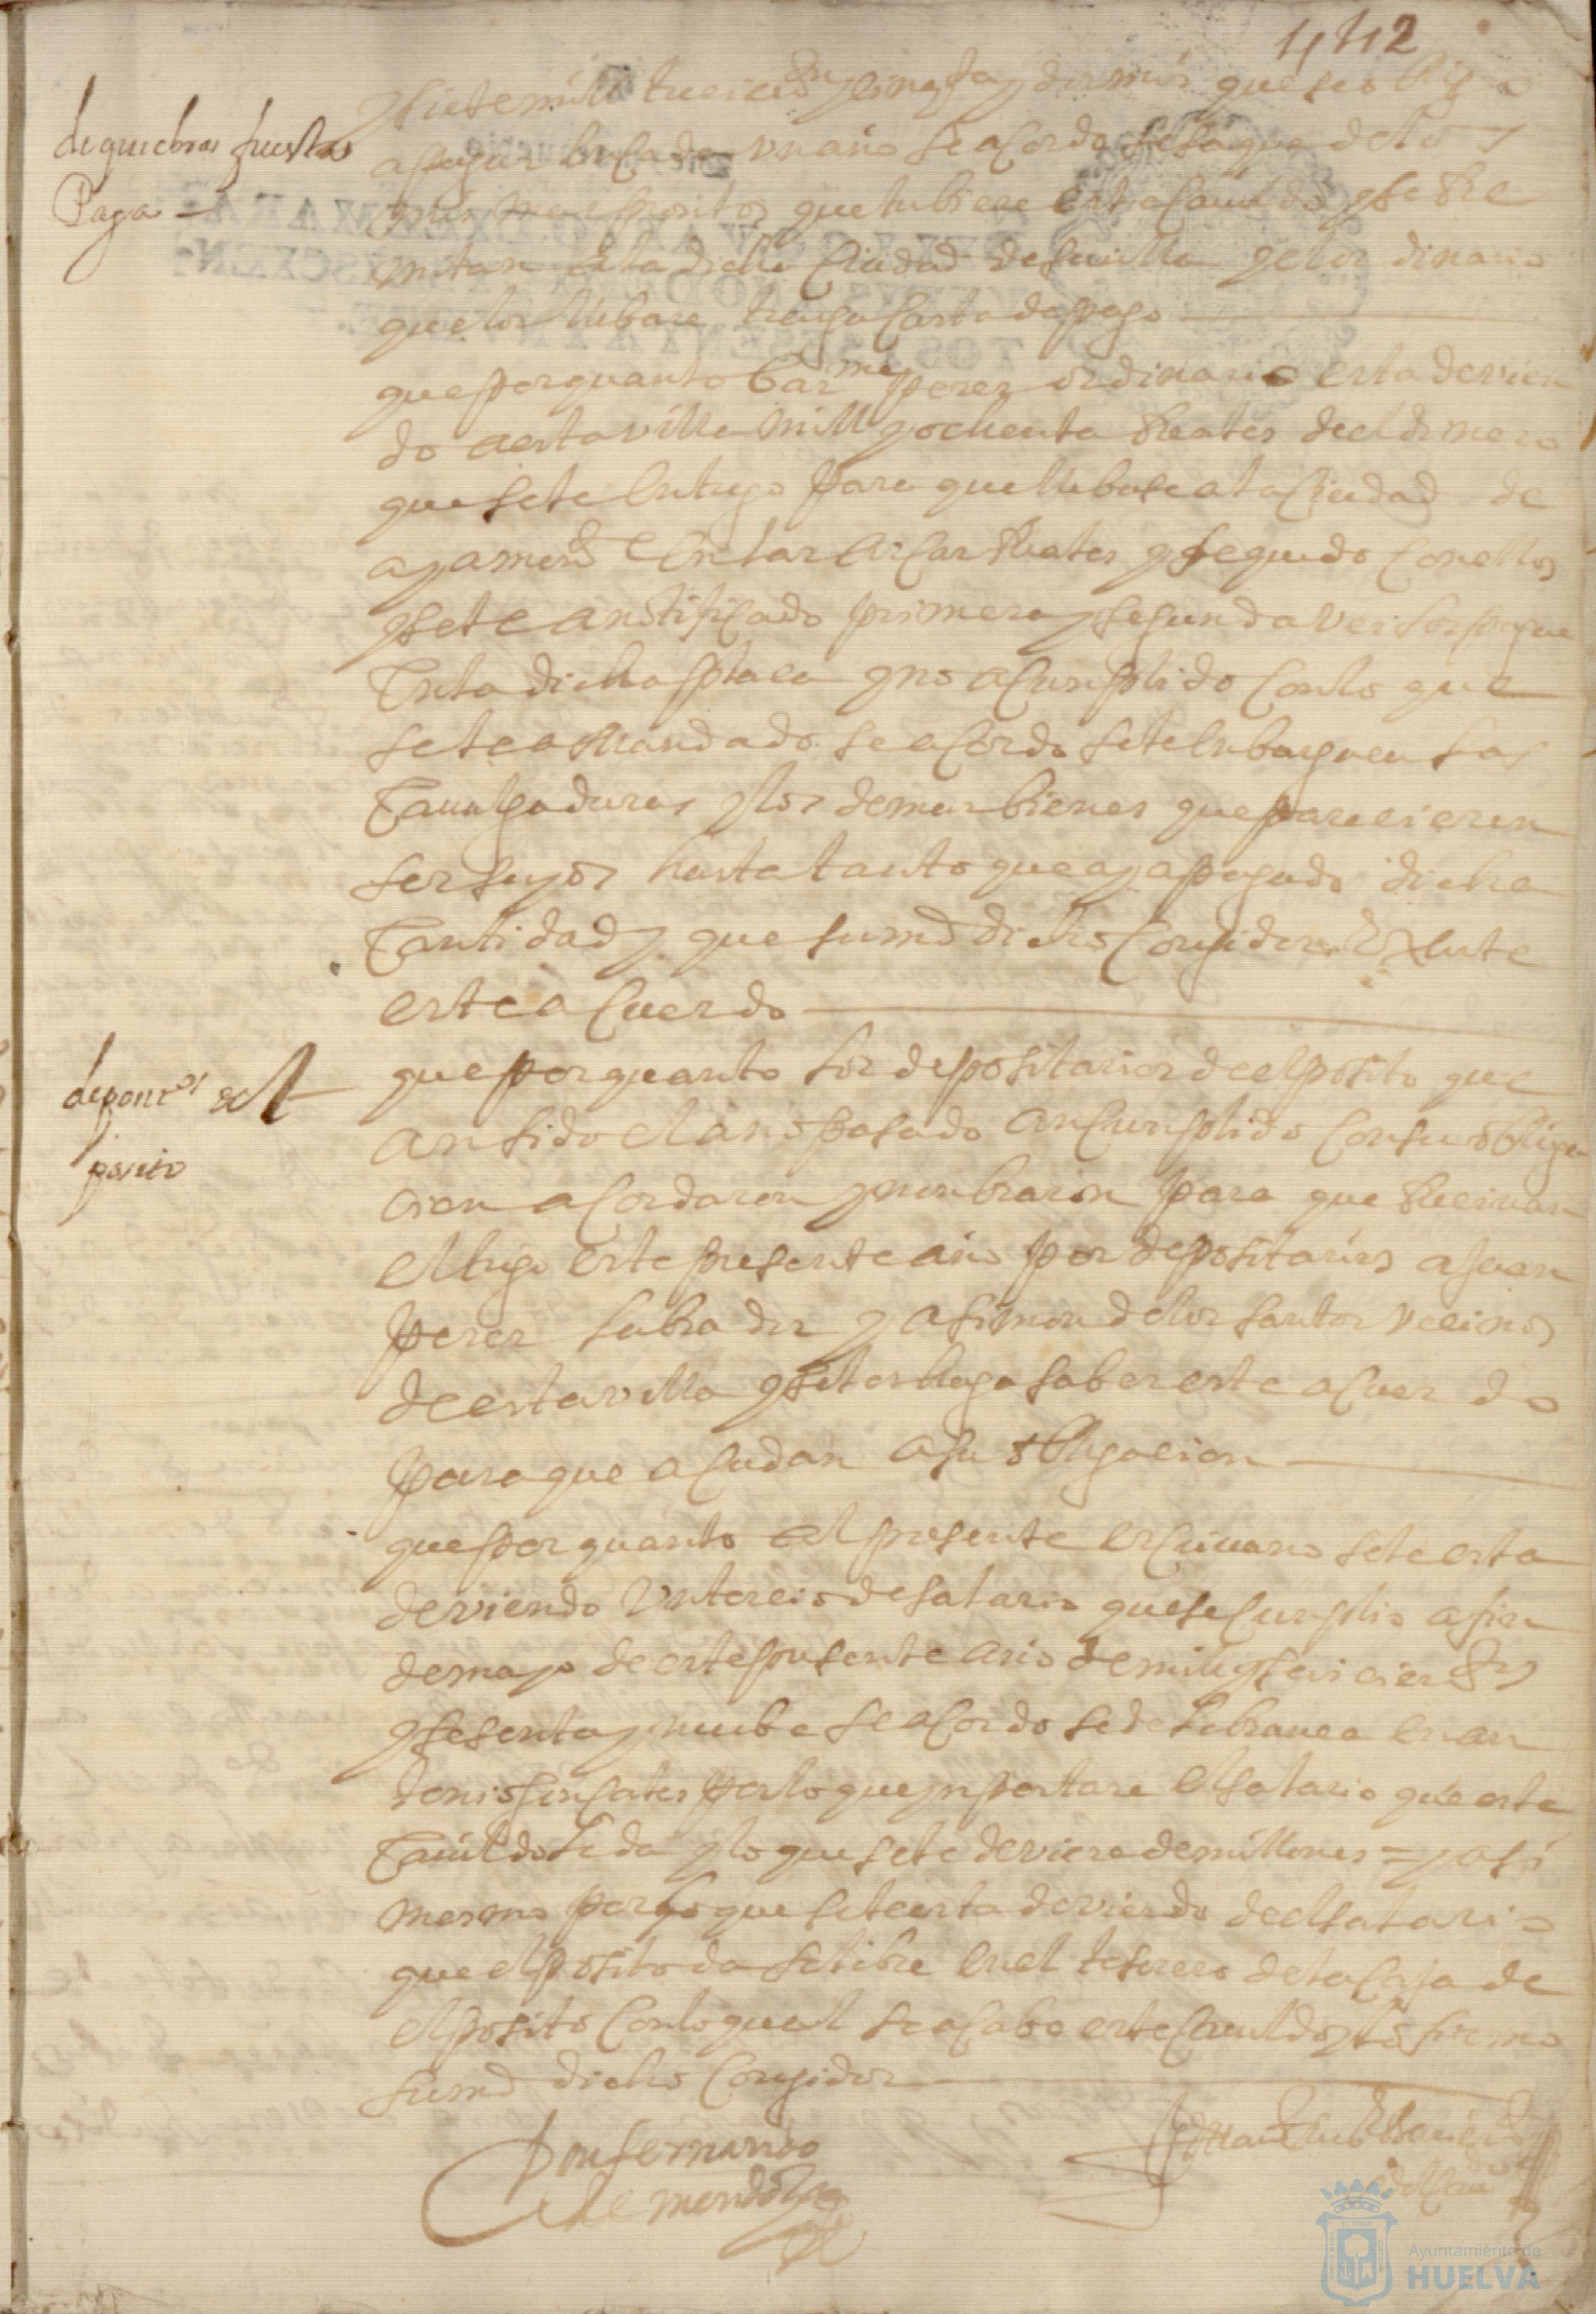 412
de quiebras questa
Paga
y siete mill trecientos y cinq.ta y dos mrs que se obligo
a pagar en cada un año se acordo se saque de lo
mas mas prontos que tubiere este cavildo y se Re
mitan a la dicha Ciudad de sevilla y el ordinario
que los llebare trayga Carta de pago
que por quanto Bar.me perez ordinario esta devien
do a esta villa mill y ochenta Reales de el dinero
que se le entrego para que llebase a la Ciudad de
ayamonte en las arcas Reales y se quedo Con ellos
y se le a notificado primera y segunda ves los pague
En la dicha plaça y no a cunplido Con lo que
se le a Mandado se acordo se le enbarguen las
Cavalgaduras y los demas bienes que parecieren
ser suyos hasta tanto que aya pagado dicha
Cantidad y que su md dicho Corregidor Execute
este acuerdo
depositos del
posito
que por quanto los depositarios de el posito que
an sido el año pasado an Cunplido Con su obliga
cion acordaron y nonbraron para que Recivan
el trigo este presente año por depositarios a Juan
perez labrador y a simon de los santos vecinos
de esta villa y se les haga saber este acuerdo
para que acudan a su obligacion
que por quanto el presente escrivano se le esta
deviendo Un tercio de salario que se Cunplio a fin
de mayo de este presente año de mill y seiscientos
y sesenta y nuebe se acordo se de Libranca en an
tonio goncales por lo que ynportare el salario que este
Cavildo le da y lo que se le deviere de millones = y asi
mesmo por lo que se le esta deviendo de el salario
que el posito da se libre en el tesorero de la Casa de
el posito Con lo qual se acabo este Cavildo y lo firmo
su md dicho Corregidor
Don fernando
de mendoza
Ayuntamiento de
HUELVA